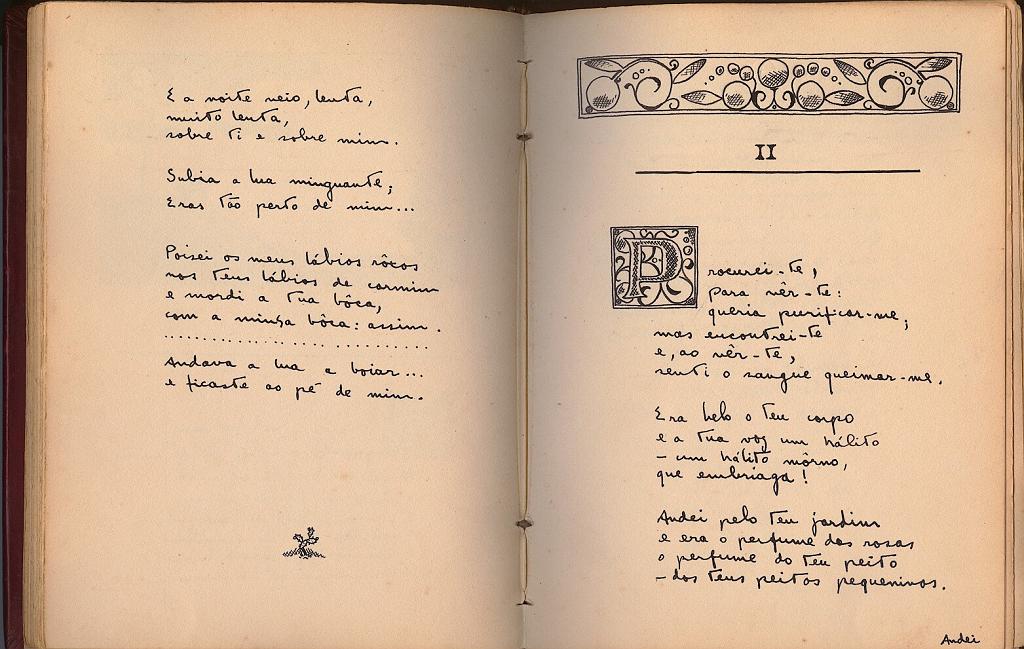 E a noite veio, lenta,
muito lenta,
sobre ti e sobre mim.
Subia a lua minguante;
Eras tão perto de mim...
Poisei os meus lábios rôxos
nos teus lábios de carmim
e mordi a tua bôca,
com a minha bôca: assim.
..............................
Andava a lua a boiar...
e ficaste ao pé de mim.
II
Procurei-te,
para vêr-te:
queria purificar-me;
mas encontrei-te
e, ao vêr-te,
senti o sangue queimar-me.
Era belo o teu corpo
e a tua voz um hálito
- um hálito môrno,
que embriaga!
Andei pelo teu jardim
e era o perfume das rosas
o perfume do teu peito
- dos teus peitos pequeninos.
Andei